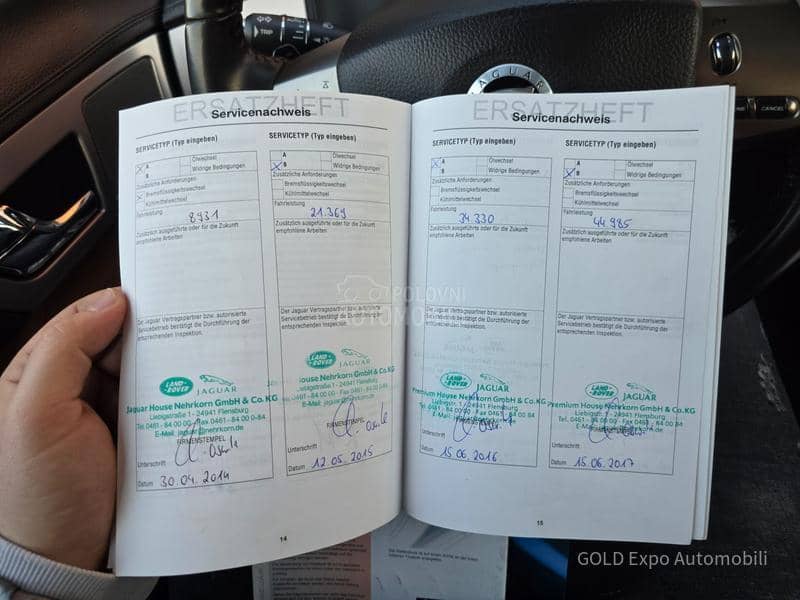 TRIP
JAGUAR
CANCEL
ERSATZHEFT
Servicenachweis
SERVICETYP (Typ eingeben)
A
B
Ölwechsel
Widrige Bedingungen
Zusätzliche Anforderungen
Bremsflüssigkeitswechsel
Kühlmittelwechsel
Fahrleistung
8931
Zusätzlich ausgeführte oder für die Zukunft
empfohlene Arbeiten
Der Jaguar Vertragspartner bzw. autorisierte
Servicebetrieb bestätigt die Durchführung der
entsprechenden Inspektion.
LAND-
ROVER
JAGUAR
Jaguar House Nehrkorn GmbH & Co.KG
Liebigstraße 1 - 24941 Flensburg
Tel. 0461 - 84 00 0 Fax 0461 - 84 00 0-84
E-Mail: jaguar@nehrkorn.de
FIRMENSTEMPEL
Unterschrift
Datum 30.04.2014
SERVICETYP (Typ eingeben)
A
B
Ölwechsel
Widrige Bedingungen
Zusätzliche Anforderungen
Bremsflüssigkeitswechsel
Kühlmittelwechsel
Fahrleistung
21.369
Zusätzlich ausgeführte oder für die Zukunft
empfohlene Arbeiten
Der Jaguar Vertragspartner bzw. autorisierte
Servicebetrieb bestätigt die Durchführung der
entsprechenden Inspektion.
LAND-
ROVER
JAGUAR
House Nehrkorn GmbH & Co.KG
Liebigstraße 1 - 24941 Flensburg
FIRMENSTEMPEL
Unterschrift
Datum 12.05.2015
14
ERSATZHEFT
Servicenachweis
SERVICETYP (Typ eingeben)
A
B
Ölwechsel
Widrige Bedingungen
Zusätzliche Anforderungen
Bremsflüssigkeitswechsel
Kühlmittelwechsel
Fahrleistung
34.330
Zusätzlich ausgeführte oder für die Zukunft
empfohlene Arbeiten
Der Jaguar Vertragspartner bzw. autorisierte
Servicebetrieb bestätigt die Durchführung der
entsprechenden Inspektion.
LAND-
ROVER
JAGUAR
Premium House Nehrkorn GmbH & Co.KG
Liebigstr. 1 - 24941 Flensburg
Unterschrift
Datum 15.06.2016
SERVICETYP (Typ eingeben)
A
B
Ölwechsel
Widrige Bedingungen
Zusätzliche Anforderungen
Bremsflüssigkeitswechsel
Kühlmittelwechsel
Fahrleistung
44.985
Zusätzlich ausgeführte oder für die Zukunft
empfohlene Arbeiten
Der Jaguar Vertragspartner bzw. autorisierte
Servicebetrieb bestätigt die Durchführung der
entsprechenden Inspektion.
LAND-
ROVER
JAGUAR
Premium House Nehrkorn GmbH & Co.KG
Liebigstr. 1 - 24941 Flensburg
Unterschrift
Datum 15.06.2017
15
POLOVNI
AUTOMOBILI
GOLD Expo Automobili